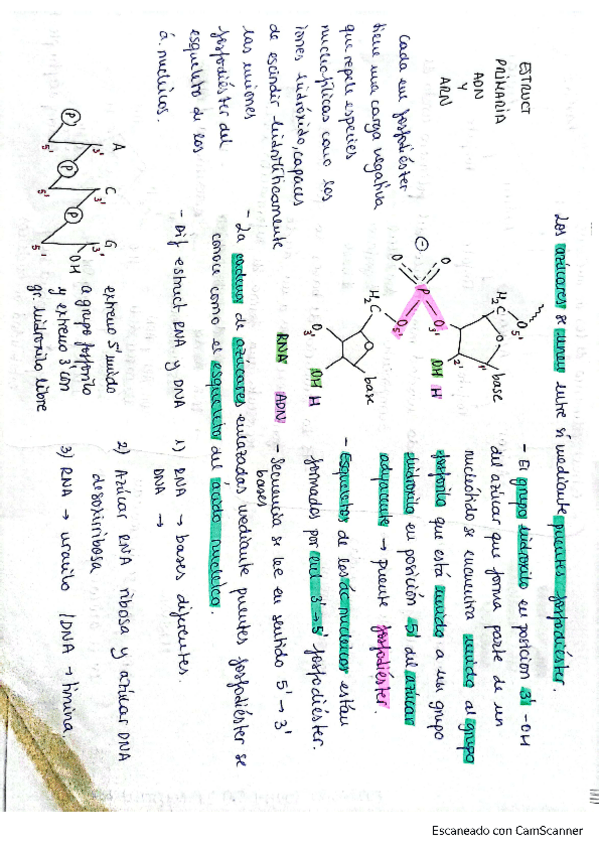 ESTRUCT
PRIMARIA
ADN
Y
ARN
Los azúcares se unen entre sí mediante puentes fosfodiéster.
- El grupo hidroxilo en posición 3'-OH
del azúcar que forma parte de un
nucleótido se encuentra unido al grupo
fosforilo que está unido a un grupo
hidroxilo en posición 5' del azúcar
adyacente → puente fosfodiéster.
- Esqueletos de los ác nucleicos están
formados por enl 3' → 5' fosfodiéster.
- Secuencia se lee en sentido 5' → 3'
bases
- La cadena de azúcares enlazadas mediante puentes fosfodiéster se
conoce como el esqueleto del ácido nucleico.
- Dif estruct RNA y DNA
1) RNA → bases diferentes.
DNA →
2) Azúcar RNA ribosa y azúcar DNA
desoxirribosa
3) RNA → uracilo / DNA → timina
Cada enl fosfodiéster
tiene una carga negativa
que repele especies
nucleofílicas como los
iones hidróxido, capaces
de escindir hidrolíticamente
las uniones
fosfodiéster del
esqueleto de los
á. nucleicos.
H₂C
O5'
base
O
1'
2'
O3'
OH H
P
O
O
⊖
O5'
H₂C
O
base
O
3'
OH H
RNA ADN
A
C
G
P
P
P
3'
3'
3'
5'
5'
5'
OH
extremo 5' unido
a grupo fosforilo
y extremo 3' con
gr. hidroxilo libre
Escaneado con CamScanner